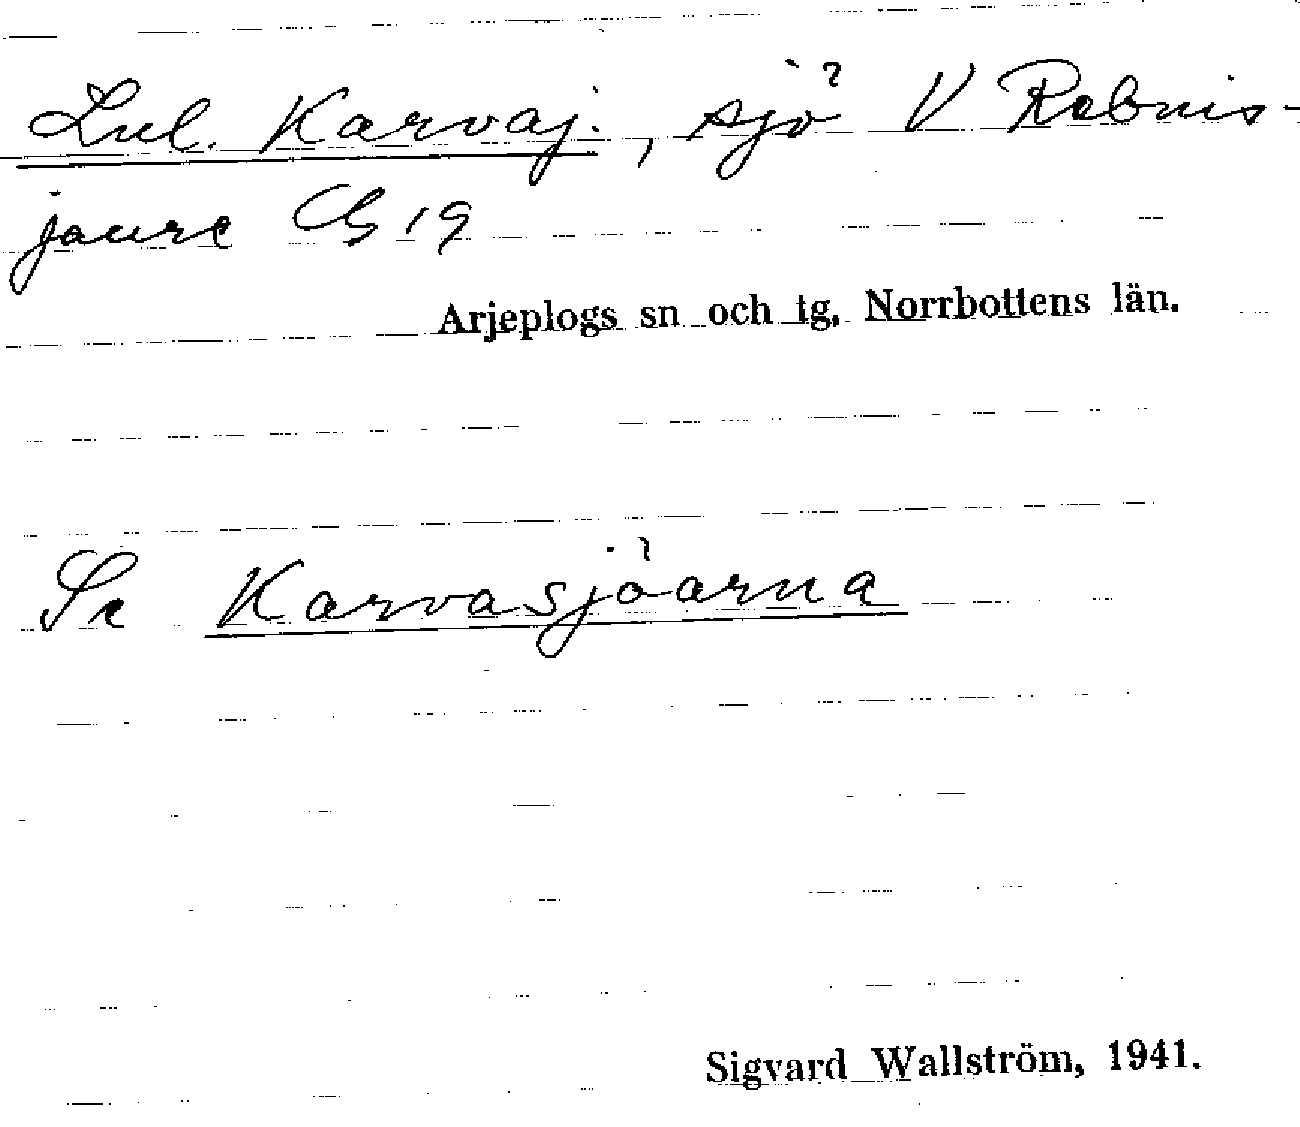 Lul. Karvaj., sjö V Rebnis-
jaure Cb 19
Arjeplogs sn och tg, Norrbottens län.
Se Karvasjöarna
Sigvard Wallström, 1941.